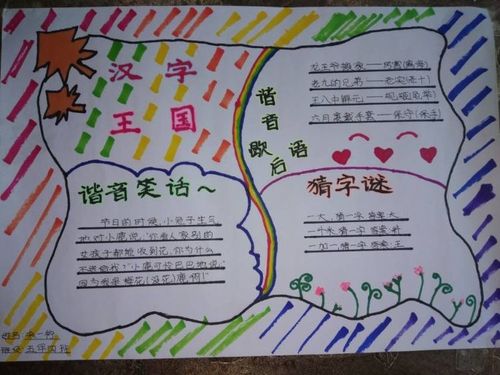 汉字
王国
谐音
歇后语
龙王爷搬家——厉害(离海)
老九的兄弟——老实(老十)
王八中解元——规矩(龟举)
六月里戴手套——保守(保手)
谐音笑话~
节日的时候,小兔子生气
地对小鹿说:"你看人家别的
女孩子都能收到花,你为什么
不送给我?"小鹿可怜巴巴地说:
因为我是梅花(没花)鹿啊!"
猜字谜
一大,猜一字 答案:天
一加一猜一字 答案:王
班级:五年四班